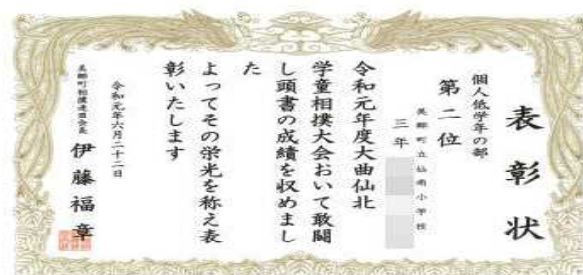 表彰状
個人低学年の部
第二位
美郷町立仙南小学校
三年
令和元年度大曲仙北
学童相撲大会おいて敢闘
し頭書の成績を収めまし
た
よってその栄光を称え表
彰いたします
令和元年六月二十二日
美郷町相撲連盟会長
伊藤福章